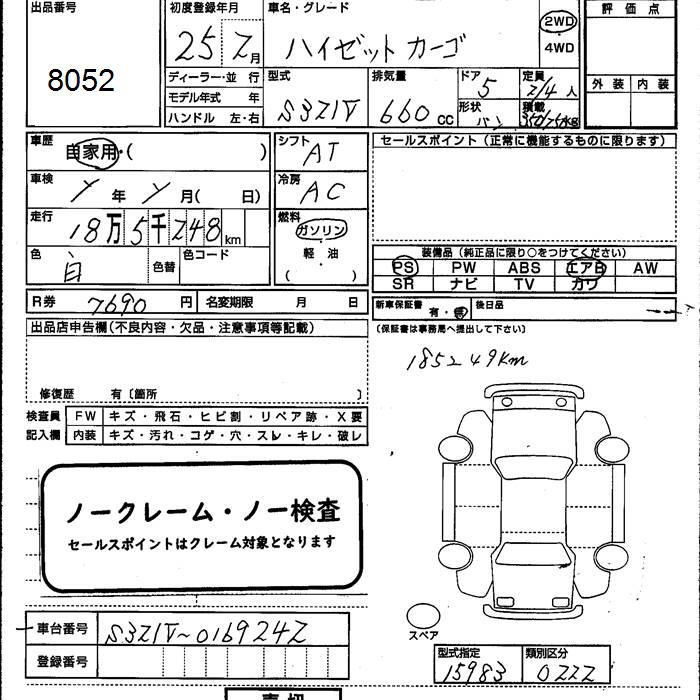 出品番号
8052
初度登録年月
25 年 2 月
車名・グレード
ハイゼット カーゴ
2WD
4WD
評価点
外装 内装
ディーラー・並 行
モデル年式 年
ハンドル 左・右
型式
S321V
排気量
660 cc
ドア
5
形状
バン
定員
2/4 人
積載
350/250kg
車歴
自家用・( )
車検
年 月( 日)
走行
18万5千248 km
色
白
色替
色コード
シフト
AT
冷房
AC
燃料
ガソリン
軽・油
( )
セールスポイント(正常に機能するものに限ります)
装備品(純正品に限り○をつけてください)
PS PW ABS エアB AW
SR ナビ TV カワ
R券 7690 円 名変期限 月 日
新車保証書
有・無
後日品
(保証書は事務局へ提出して下さい)
出品店申告欄(不良内容・欠品・注意事項等記載)
修復歴 有〔箇所 〕
185249km
検査員
記入欄
FW キズ・飛石・ヒビ割・リペア跡・X要
内装 キズ・汚れ・コゲ・穴・スレ・キレ・破レ
ノークレーム・ノー検査
セールスポイントはクレーム対象となります
スペア
車台番号 S321V-0169242
登録番号
型式指定
15983
類別区分
0222